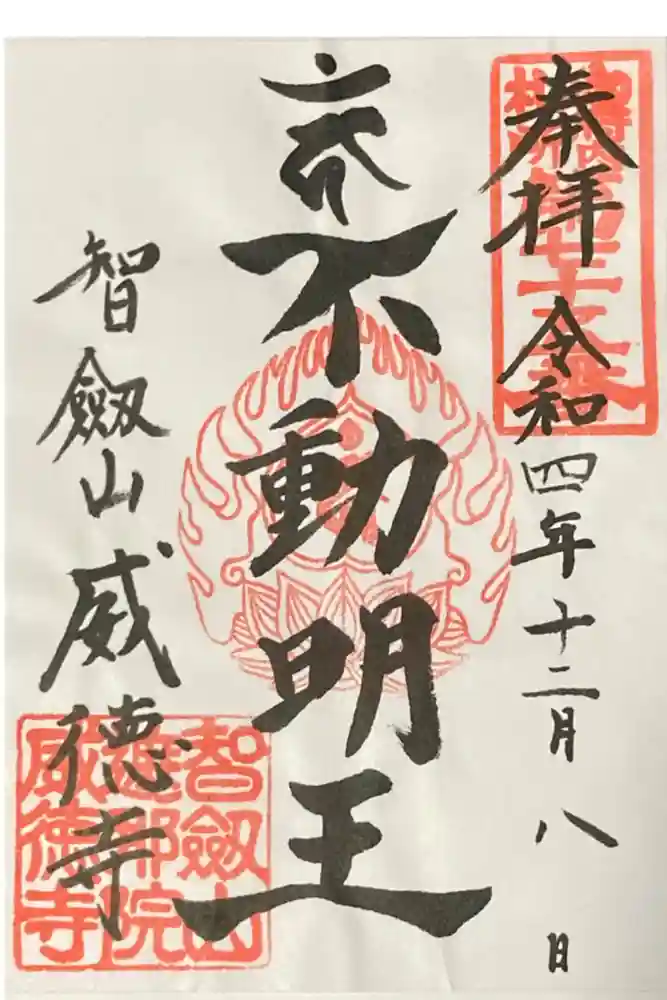 奉拝 令和四年十二月八日
不動明王
智劔山 威徳寺
智劔山
遮那院
威徳寺